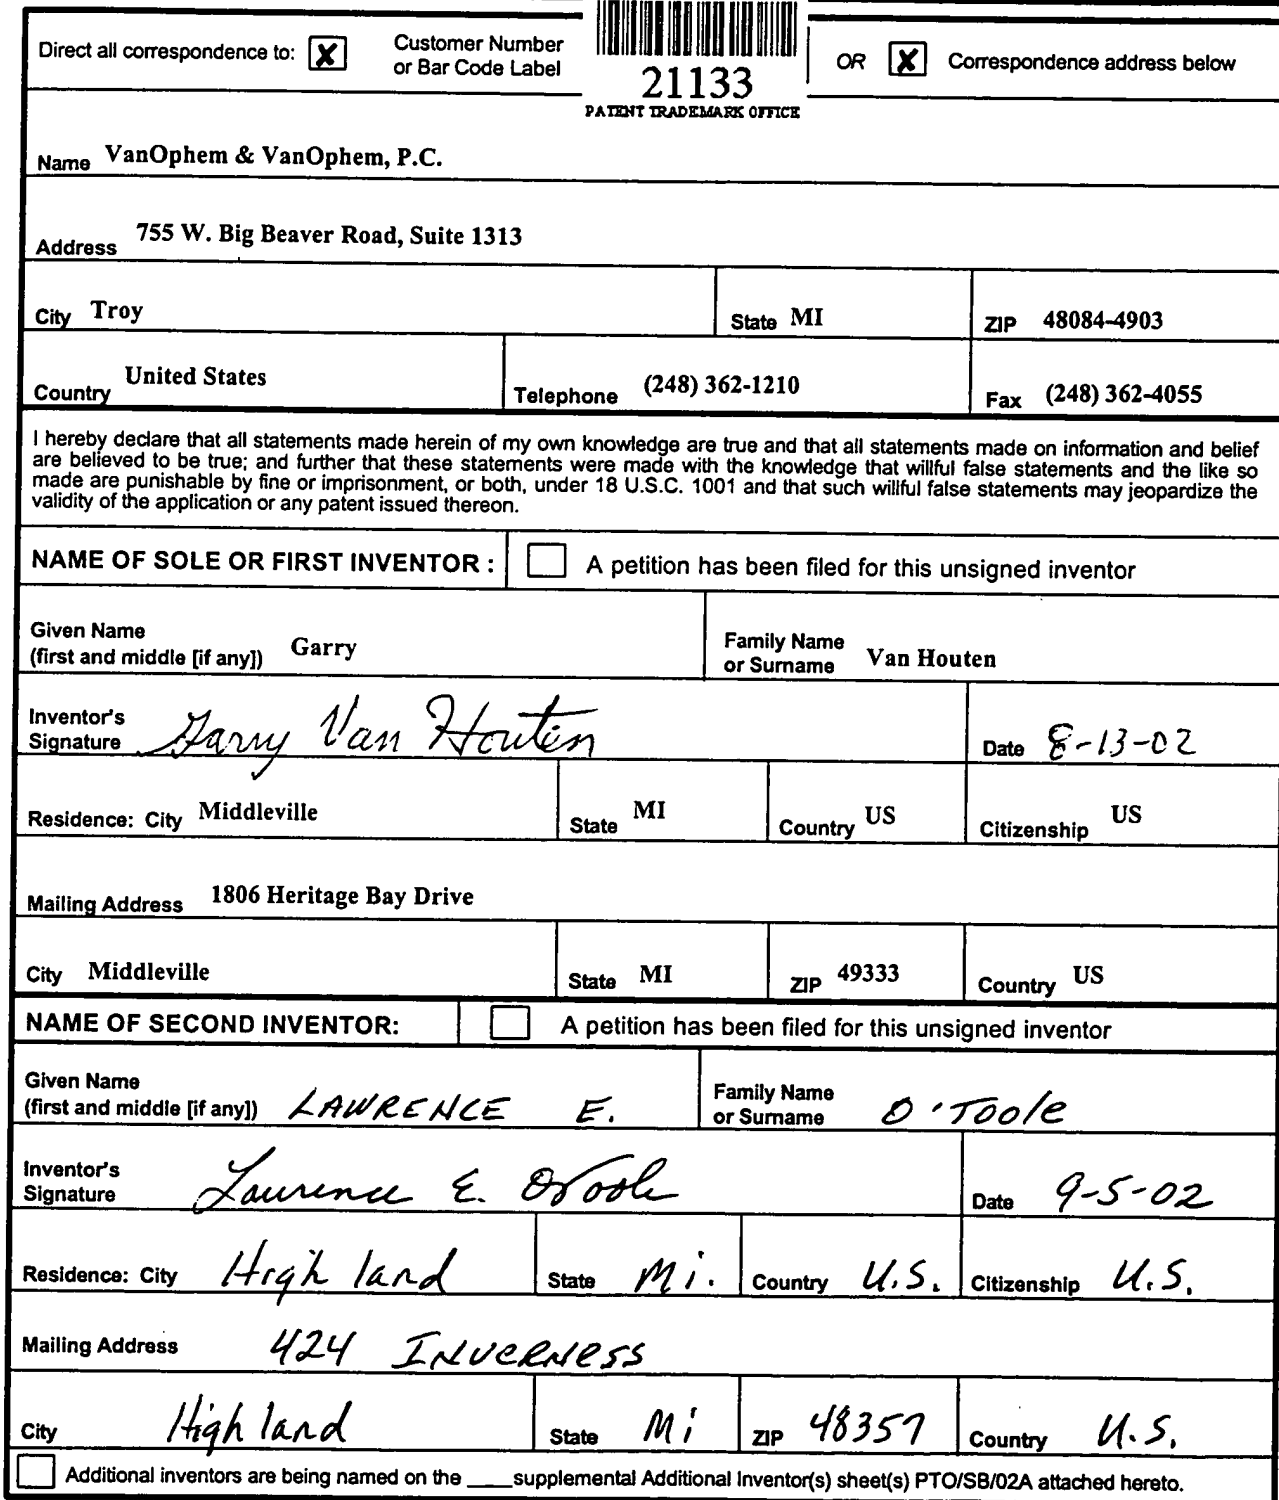 Direct all correspondence to: X Customer Number or Bar Code Label 21133 OR X Correspondence address below
PATENT TRADEMARK OFFICE
Name VanOphem & VanOphem, P.C.
Address 755 W. Big Beaver Road, Suite 1313
City Troy State MI ZIP 48084-4903
Country United States Telephone (248) 362-1210 Fax (248) 362-4055
I hereby declare that all statements made herein of my own knowledge are true and that all statements made on information and belief
are believed to be true; and further that these statements were made with the knowledge that willful false statements and the like so
made are punishable by fine or imprisonment, or both, under 18 U.S.C. 1001 and that such willful false statements may jeopardize the
validity of the application or any patent issued thereon.
NAME OF SOLE OR FIRST INVENTOR : A petition has been filed for this unsigned inventor
Given Name
(first and middle [if any]) Garry
Family Name
or Surname Van Houten
Inventor's
Signature Garry Van Houten Date 8-13-02
Residence: City Middleville State MI Country US Citizenship US
Mailing Address 1806 Heritage Bay Drive
City Middleville State MI ZIP 49333 Country US
NAME OF SECOND INVENTOR: A petition has been filed for this unsigned inventor
Given Name
(first and middle [if any]) LAWRENCE E.
Family Name
or Surname O'Toole
Inventor's
Signature Lawrence E. O'Toole Date 9-5-02
Residence: City Highland State Mi. Country U.S. Citizenship U.S.
Mailing Address 424 INVERNESS
City Highland State Mi ZIP 48357 Country U.S.
Additional inventors are being named on the ____supplemental Additional Inventor(s) sheet(s) PTO/SB/02A attached hereto.